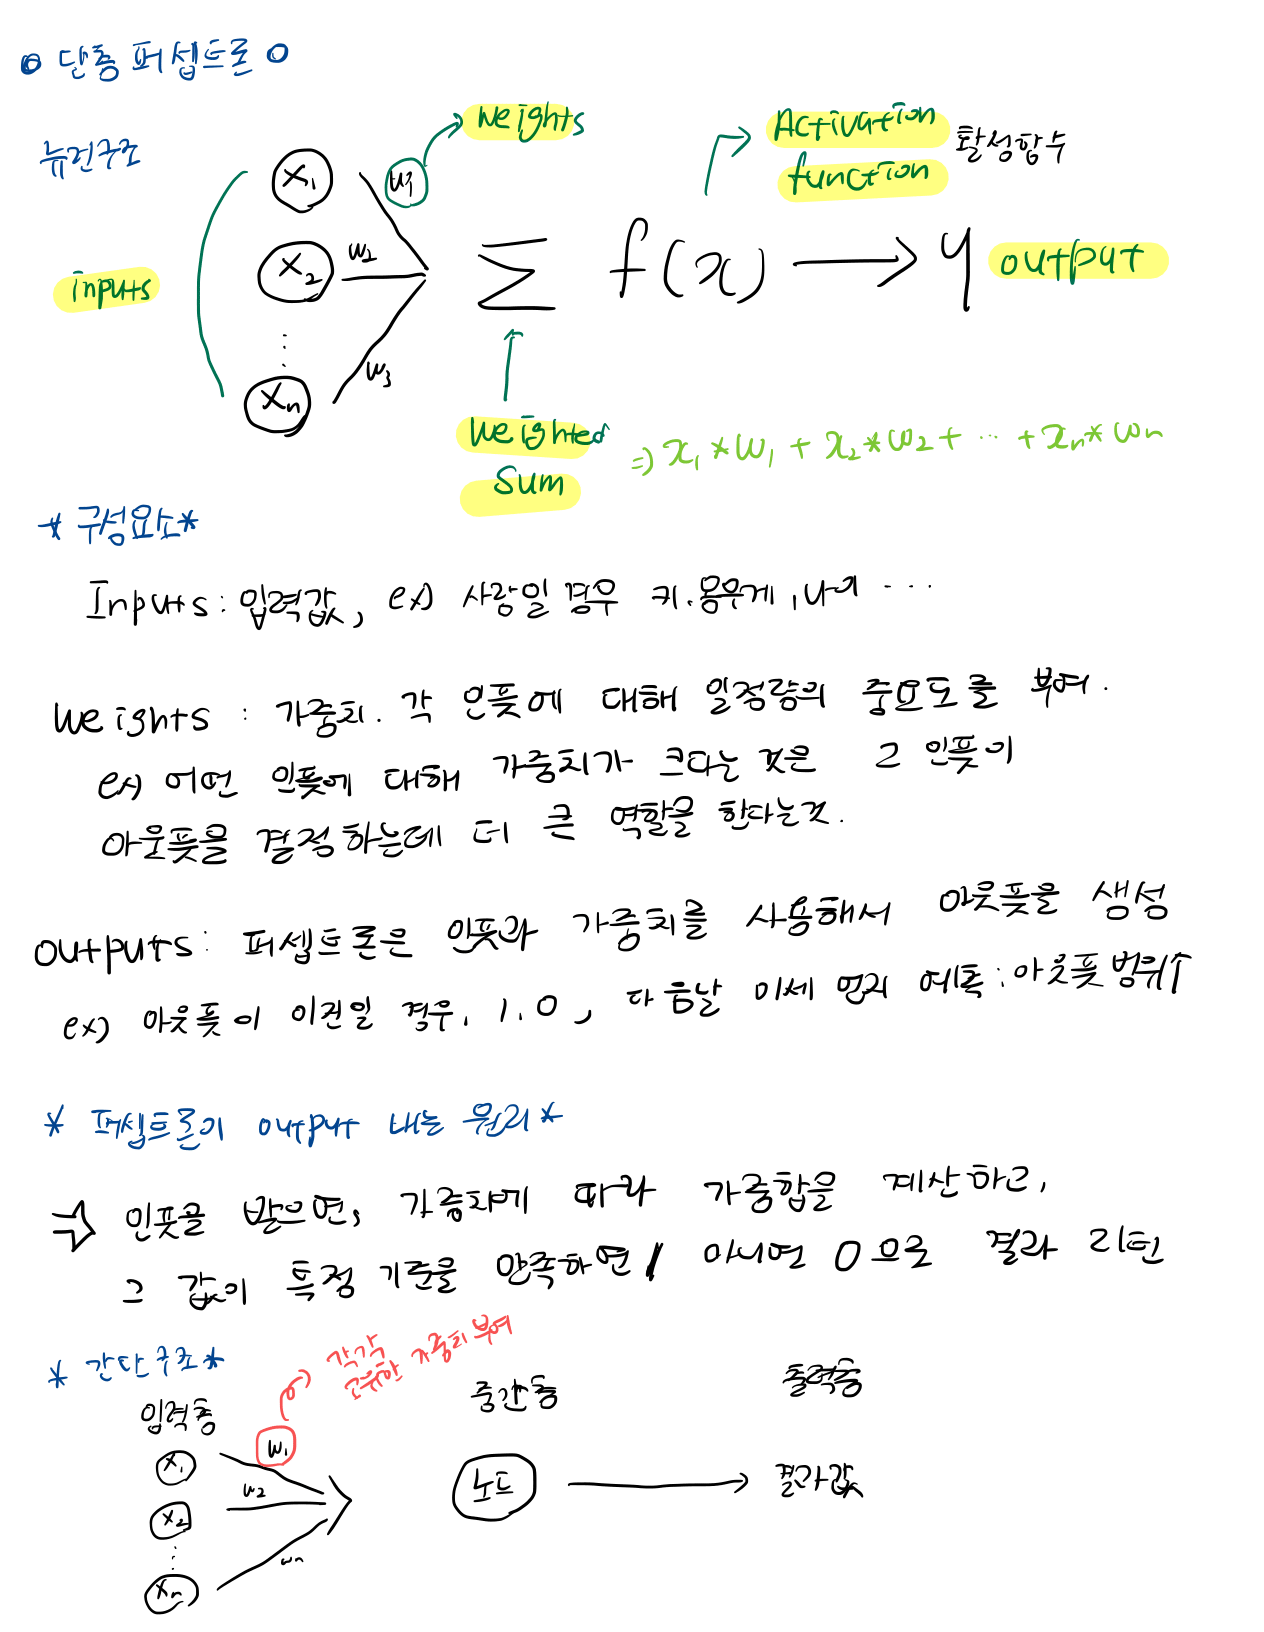 o 단층 퍼셉트론 o
뉴런구조
inputs
x₁
x₂
⋮
xₙ
w₁
w₂
w₃
Weights
Σ
f(x) → y
Activation
function
활성함수
output
Weighted
Sum
⇒ x₁*w₁ + x₂*w₂ + ⋯ + xₙ*wₙ
* 구성요소 *
Inputs : 입력값, ex) 사람일 경우 키, 몸무게, 나이 ⋯
Weights : 가중치. 각 인풋에 대해 일정량의 중요도를 부여.
ex) 어떤 인풋에 대해 가중치가 크다는 것은 그 인풋이
아웃풋을 결정하는데 더 큰 역할을 한다는것.
outputs : 퍼셉트론은 인풋과 가중치를 사용해서 아웃풋을 생성
ex) 아웃풋이 이진일 경우, 1, 0, 다음날 미세먼지 예측 : 아웃풋 범위↑
* 퍼셉트론이 output 내는 원리 *
⇒ 인풋을 받으면, 가중치에 따라 가중합을 계산하고,
그 값이 특정 기준을 만족하면 1 아니면 0으로 결과 리턴
* 간단구조 *
각각
고유한 가중치 부여
입력층
중간층
출력층
x₁
x₂
⋮
xₙ
w₁
w₂
wₙ
노드
→
결과값